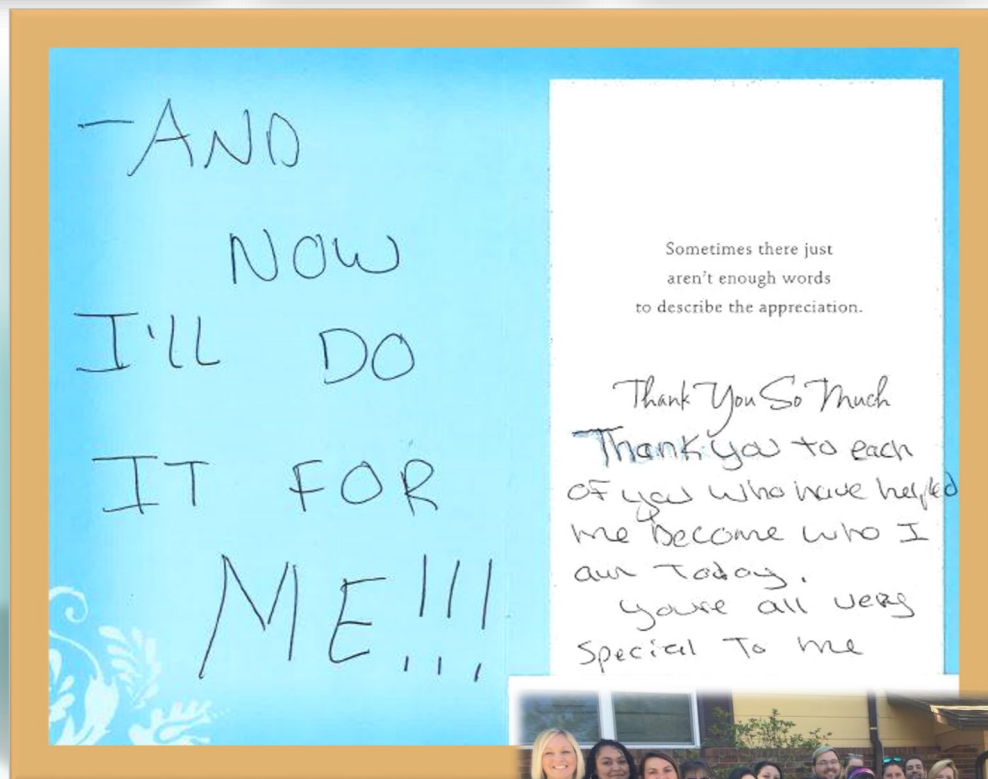 -AND
NOW
I'LL DO
IT FOR
ME!!!
Sometimes there just
aren't enough words
to describe the appreciation.
Thank You So Much
Thank you to each
of you who have helped
me become who I
am Today.
You're all very
special To me